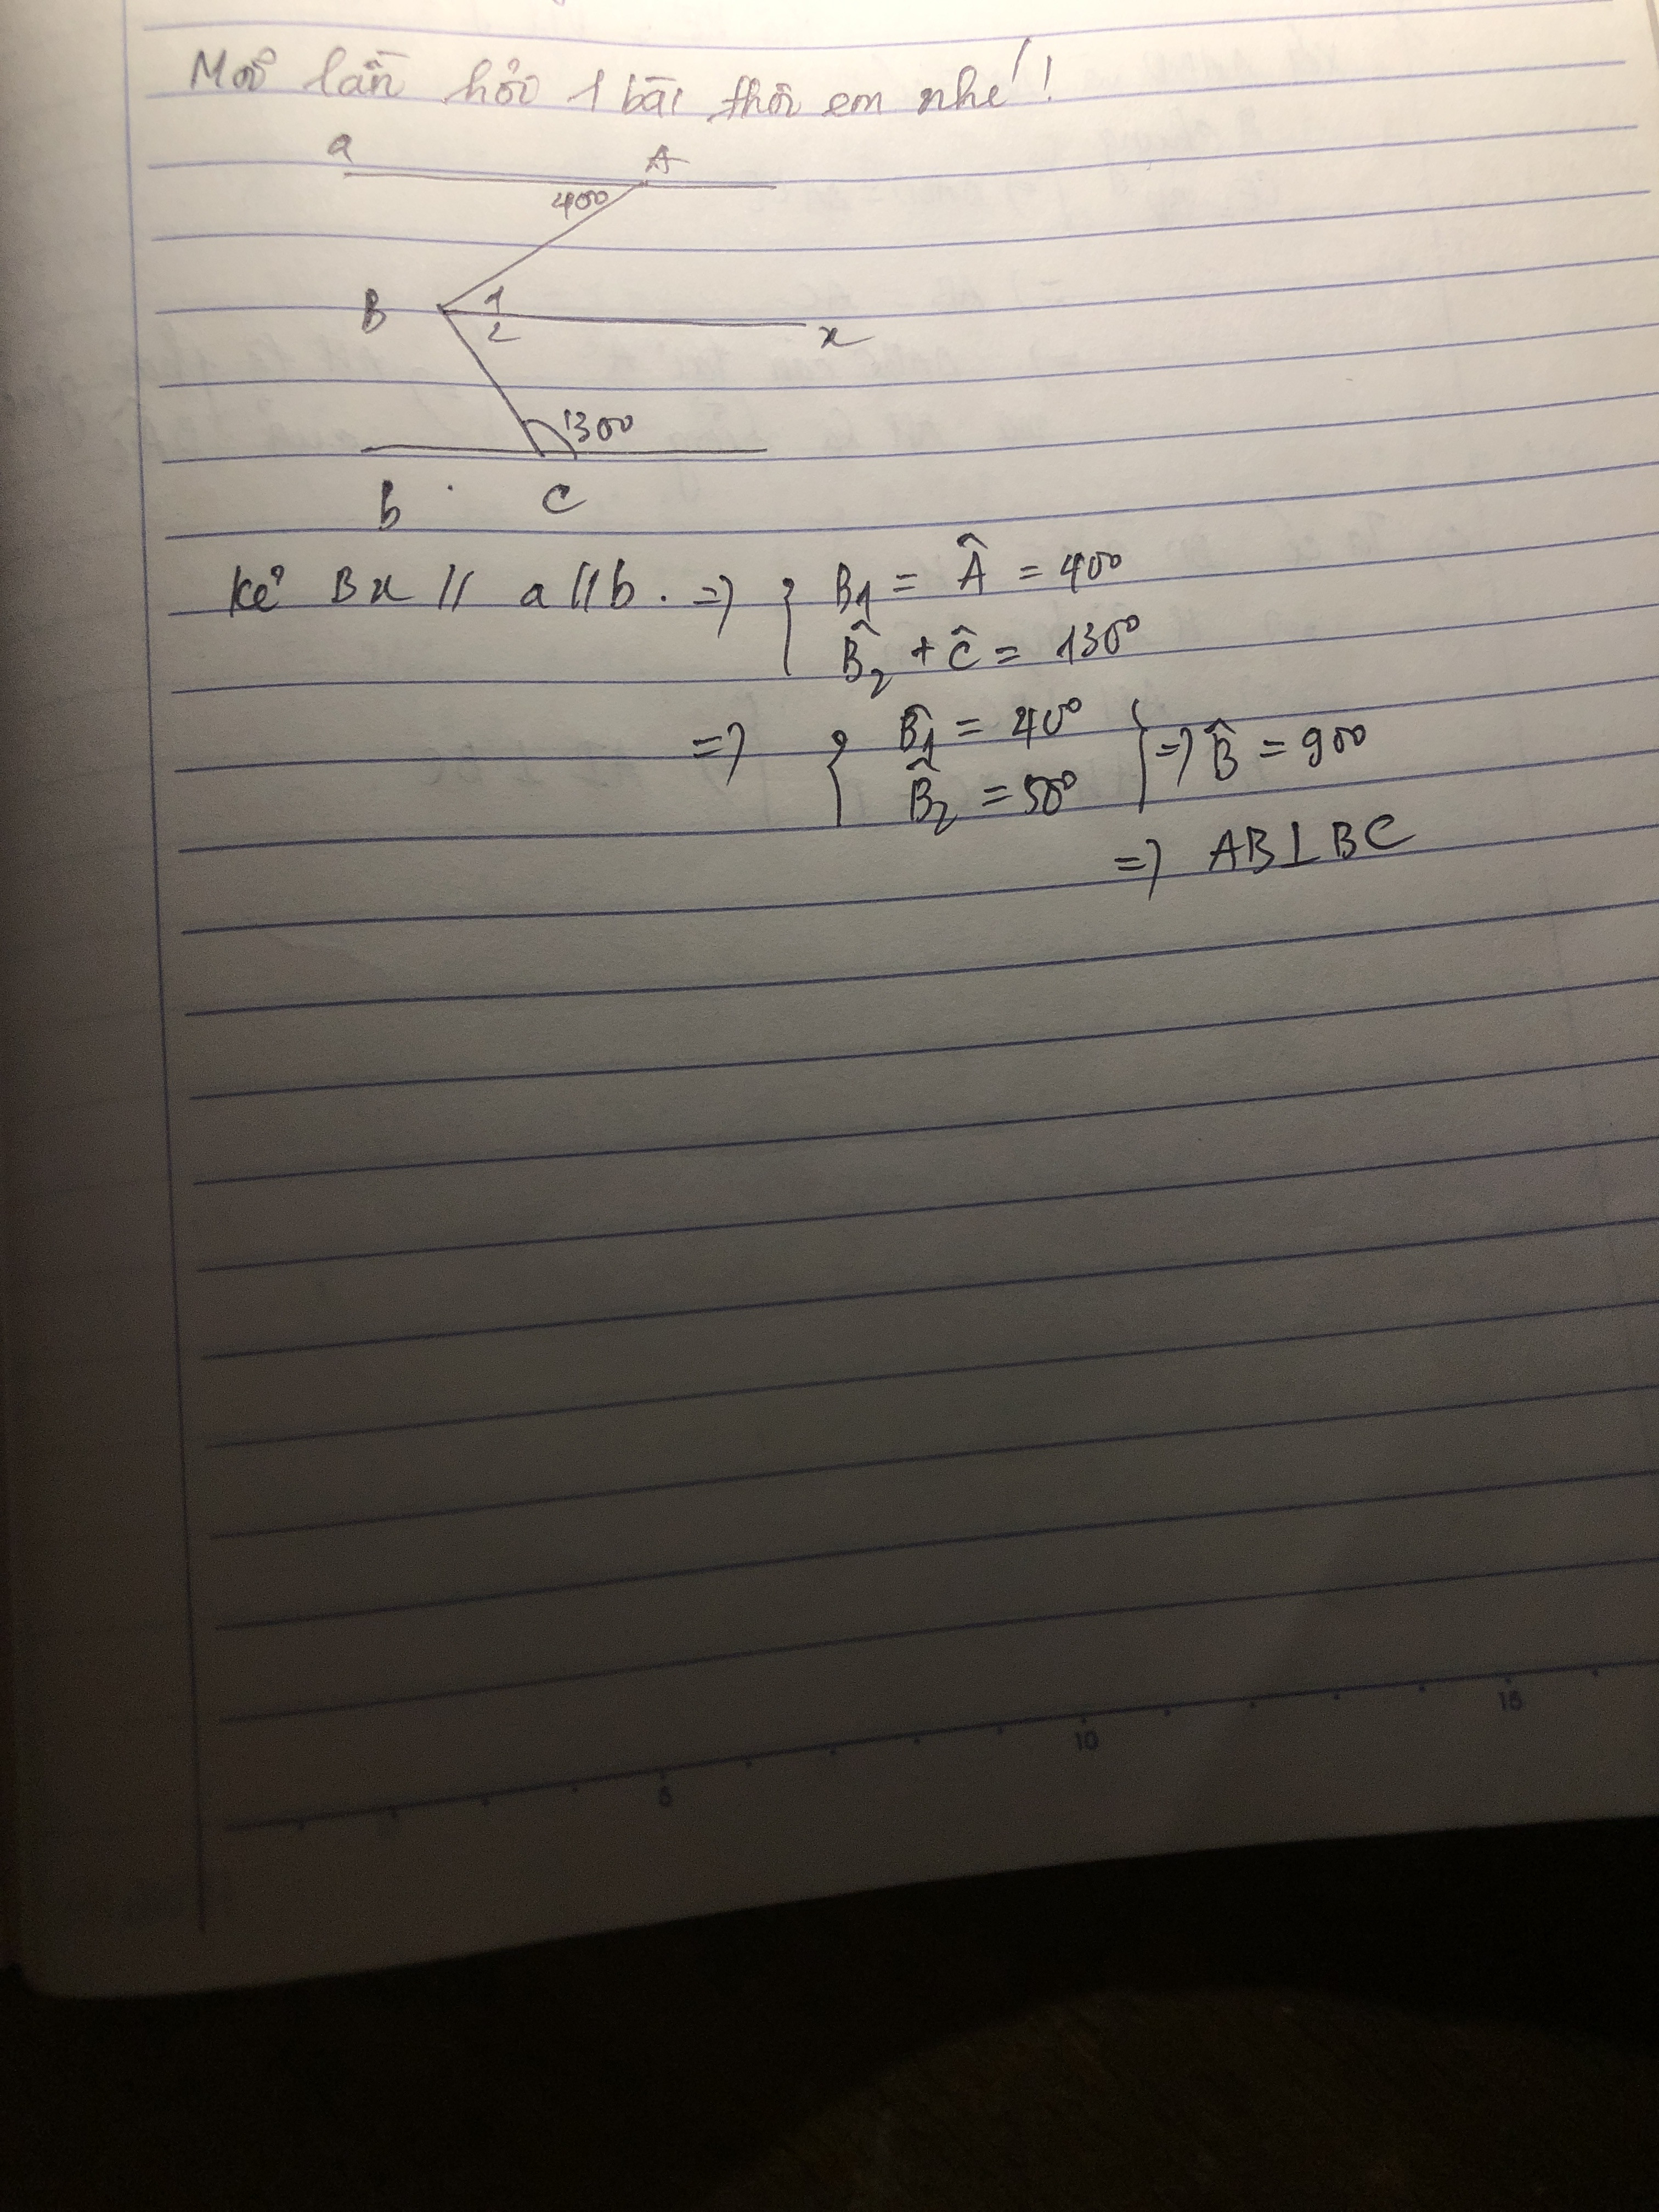 Mỗi lần hỏi 1 bài thôi em nhé!
a A
40°
B 1 x
2
130°
b C
Kẻ Bx // a // b. => { B1 = Â = 40°
B̂2 + Ĉ = 130°
=> { B̂1 = 40° } => B̂ = 90°
B̂2 = 50°
=> AB⊥BC
5 10 15